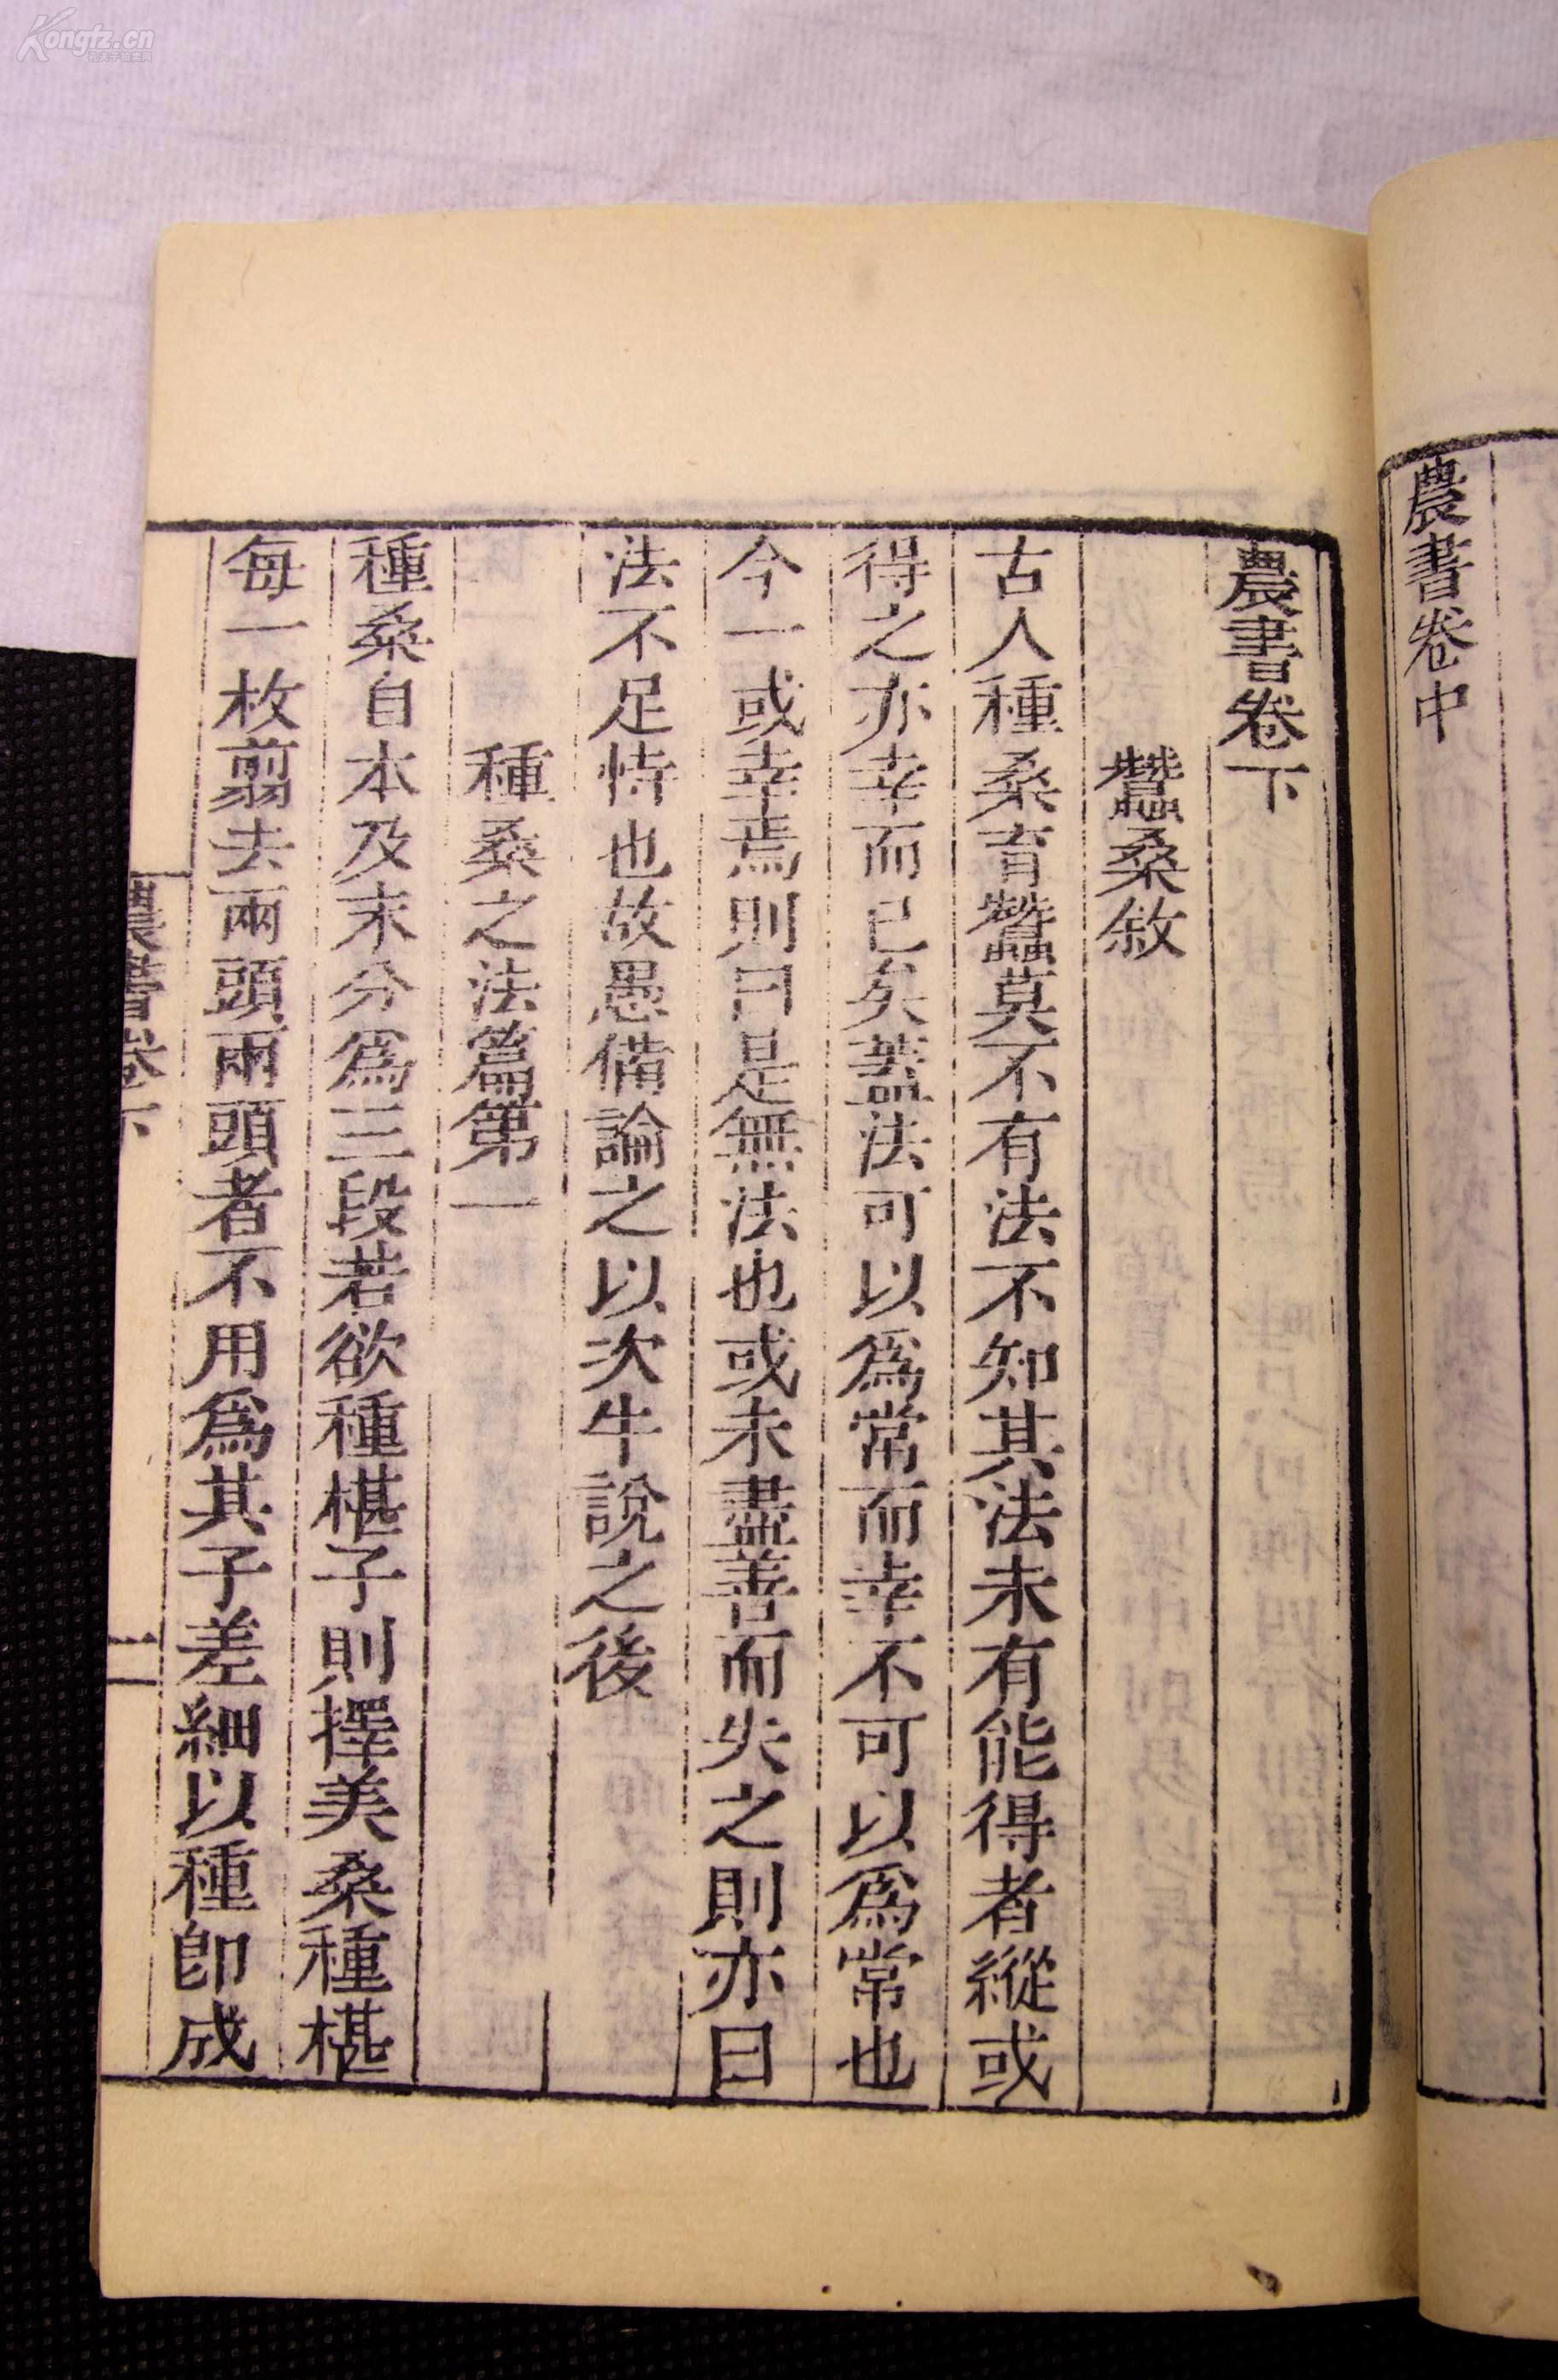 農書卷中
農書卷下
蠶桑敘
古人種桑育蠶莫不有法不知其法未有能得者縱或
得之亦幸而已矣蓋法可以爲常而幸不可以爲常也
今一或幸焉則曰是無法也或未盡善而失之則亦曰
法不足恃也故愚備論之以次牛說之後
種桑之法篇第一
種桑自本及末分爲三段若欲種椹子則擇美桑種椹
每一枚翦去兩頭兩頭者不用爲其子差細以種卽成
農書卷下
二
Kongfz.cn